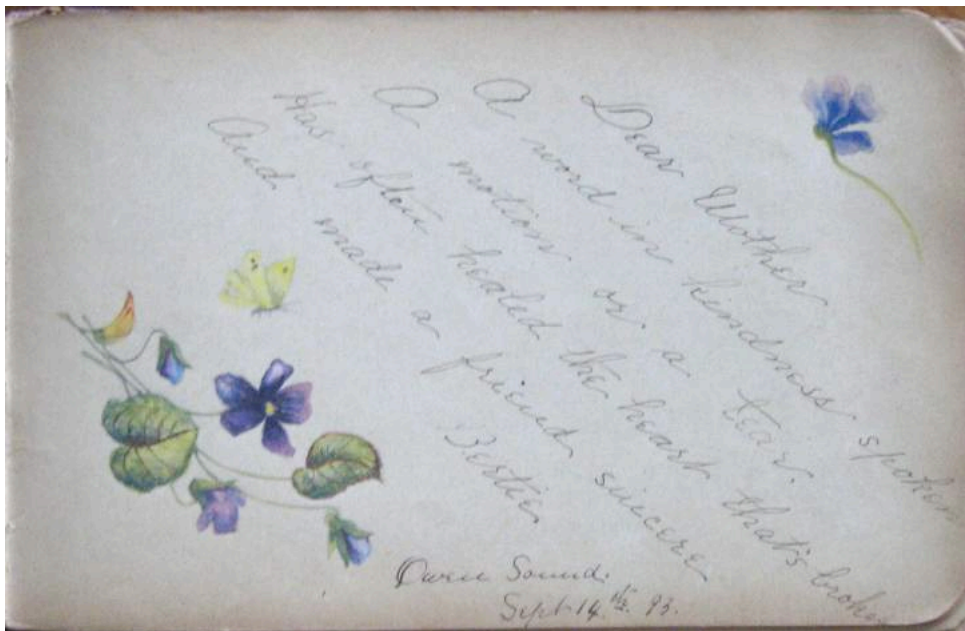 Dear Mother
A word in kindness spoken
A motion or a tear
Has often healed the heart that's broken
And made a friend sincere
Bertie
Owen Sound.
Sept 14th 93.